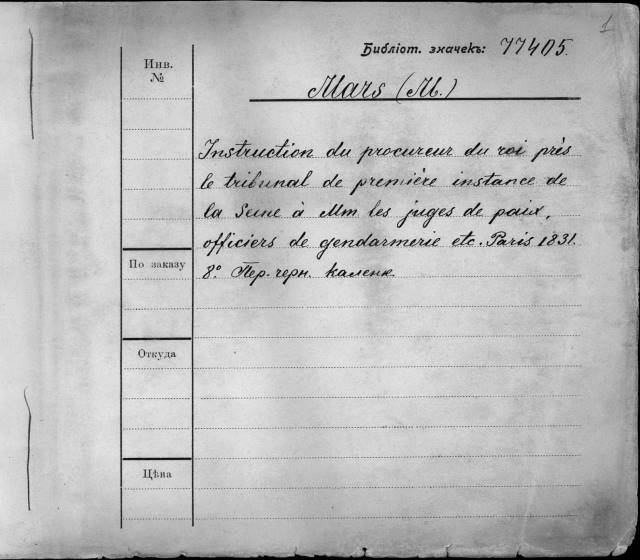 1
Библіот. значекъ: 77405.
Инв.
№
Mars (M.)
Instruction du procureur du roi près
le tribunal de première instance de
la Seine à Mm les juges de paix,
officiers de gendarmerie etc. Paris 1831.
8º Пер. черн. каленк.
По заказу
Откуда
Цѣна